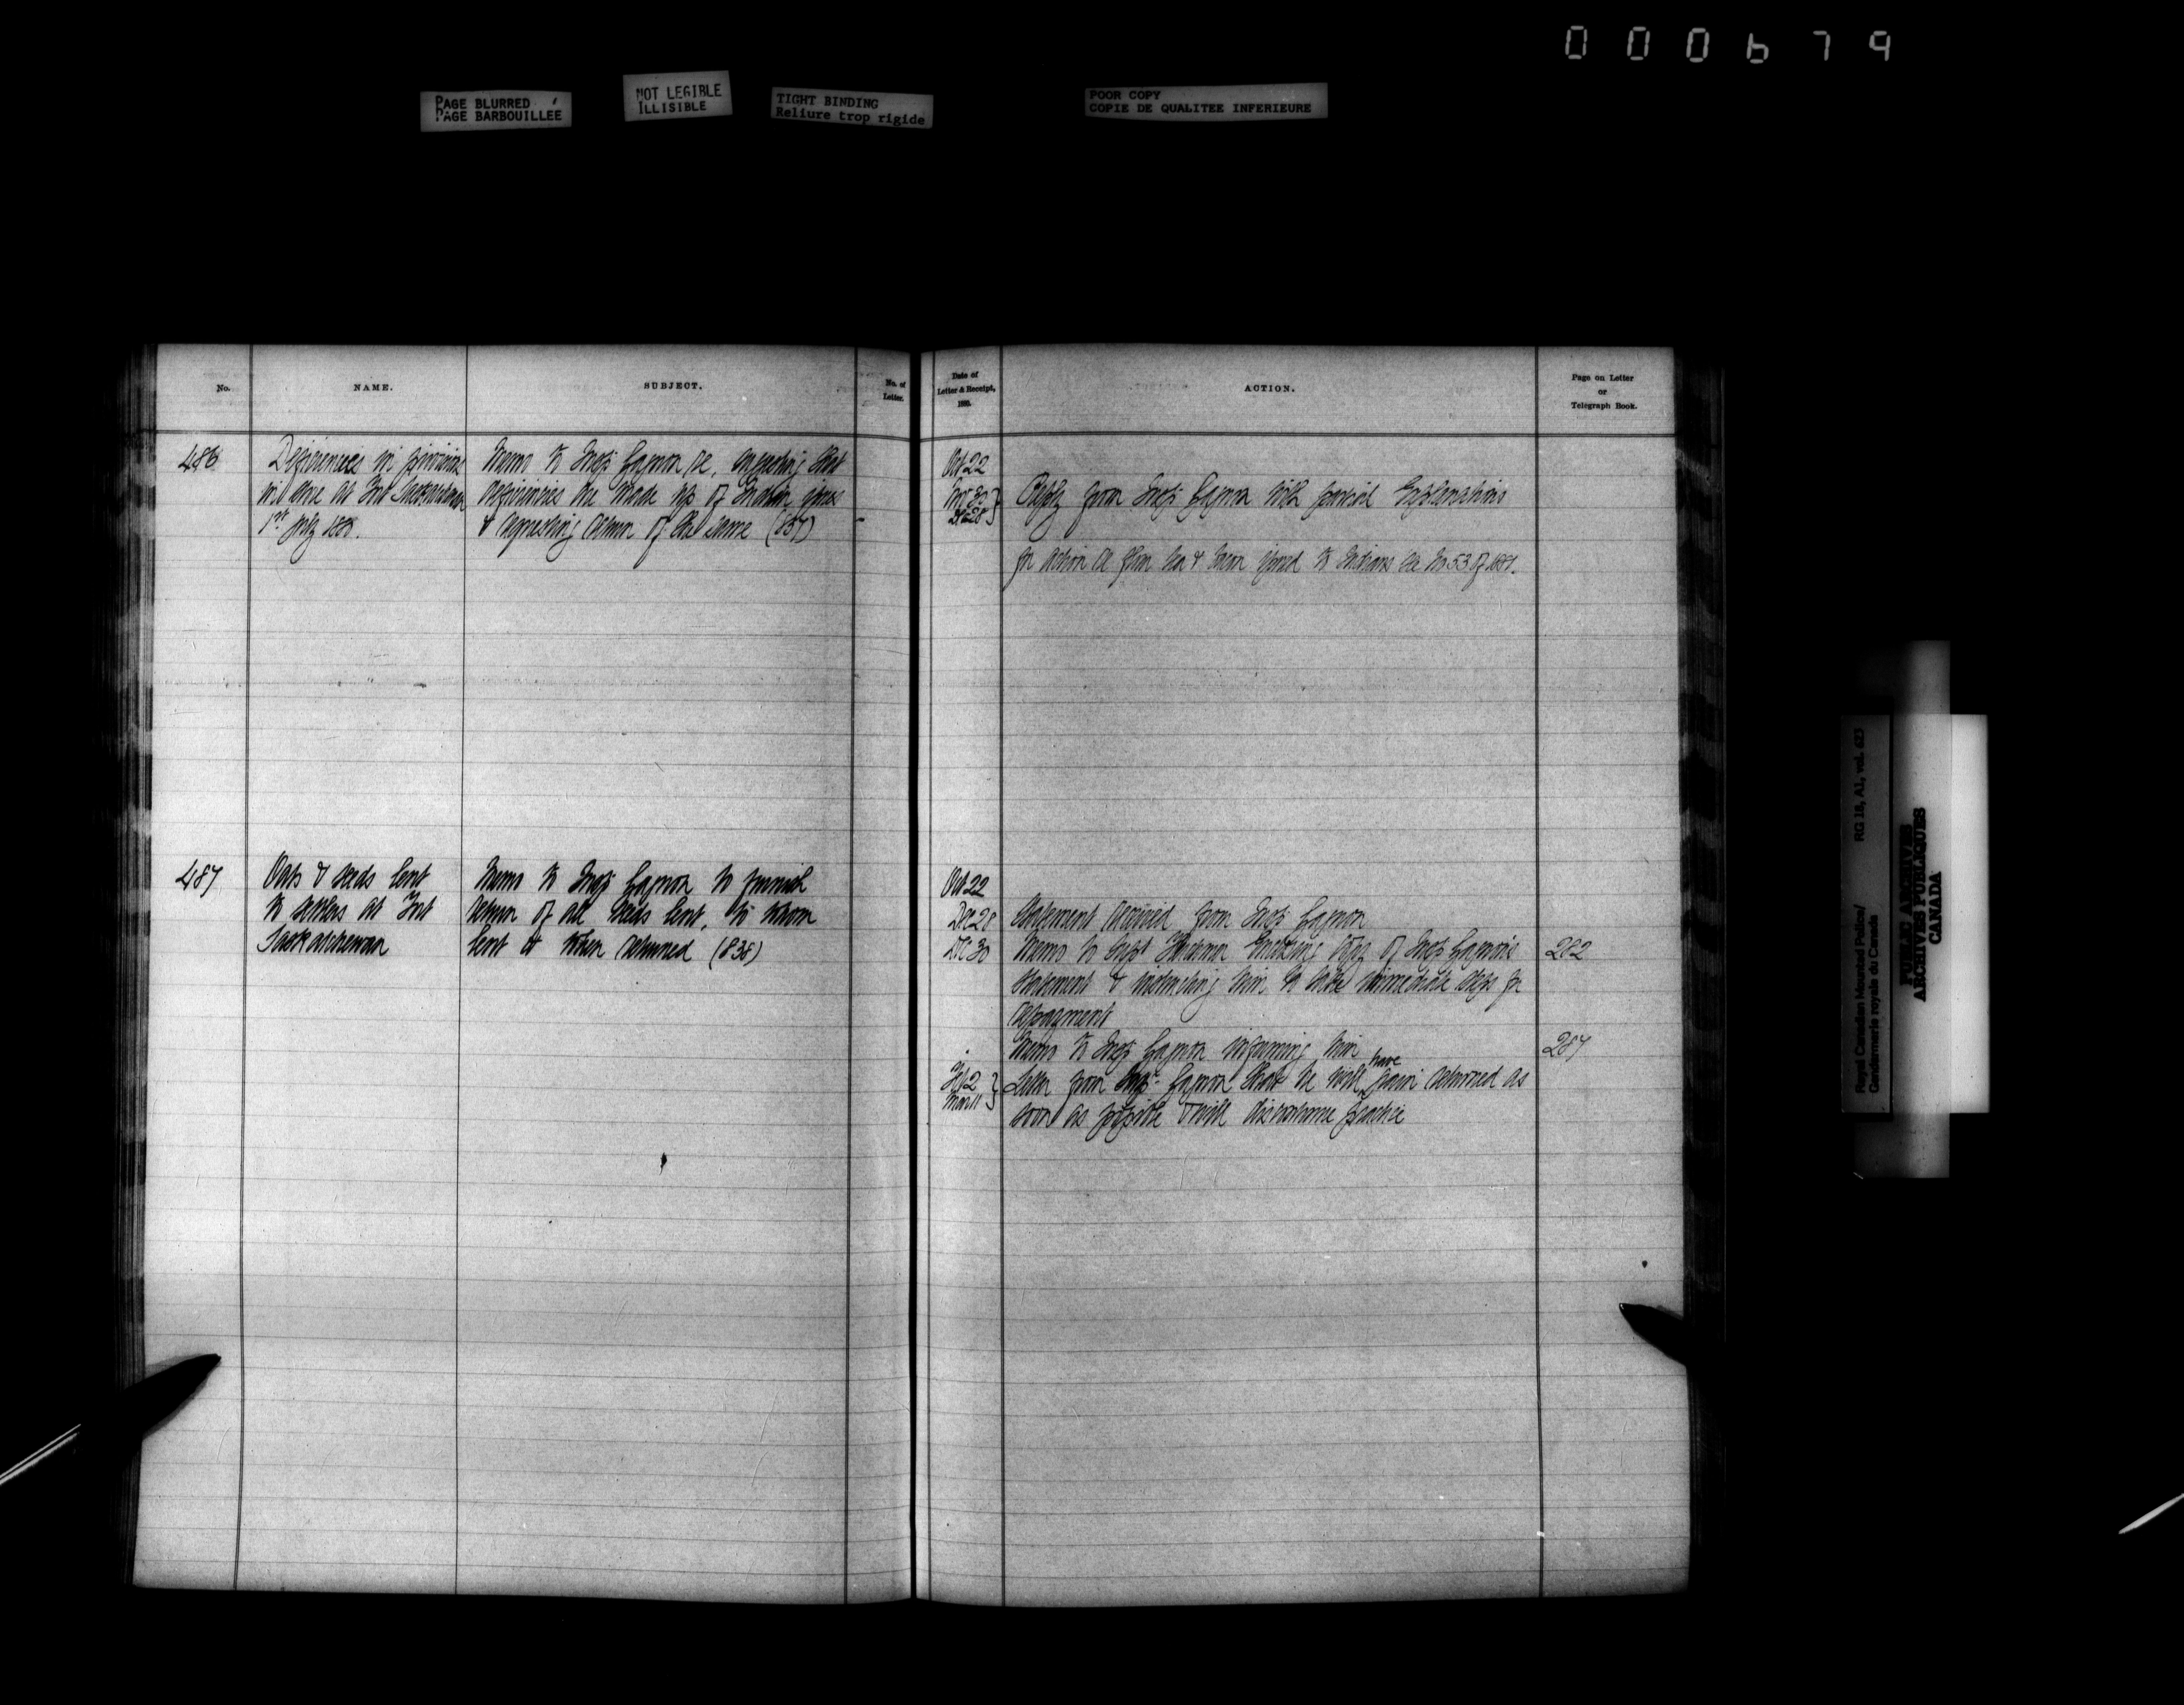 000679
PAGE BLURRED
PAGE BARBOUILLÉE
NOT LEGIBLE
ILLISIBLE
TIGHT BINDING
Reliure trop rigide
POOR COPY
COPIE DE QUALITEE INFERIEURE
No.
NAME.
SUBJECT.
No. of
Letter.
Date of
Letter & Receipt,
1880.
ACTION.
Page on Letter
or
Telegraph Book.
486
Deficiencies in provisions
in store at Fort Saskatchewan
1st July 1880.
Memo to Insp Gagnon re, that
deficiencies are made up of Indian issues
& requesting return of the same (837)
Oct 22
Nov 30
Dec 28
Reply from Insp Gagnon with partial Explanations
for action re flour tea & bacon issued to Indians see No 53 of 1881.
487
Oats & seeds lent
to settlers at Fort
Saskatchewan
Memo to Insp Gagnon to furnish
return of all seeds lent, to whom
lent & when returned (838)
Oct 22
Dec 28
Statement received from Insp Gagnon
Dec 30
Memo to Supt Herchmer Enclosing copy of Insp Gagnon's
statement & instructing him to take immediate steps for
repayment
282
Memo to Insp Gagnon informing him
287
Feb 2
Mar 11
Letter from Insp Gagnon that he will have grain returned as
soon as possible & will discontinue practice
Royal Canadian Mounted Police/
Gendarmerie royale du Canada
RG 18, A1, vol. 623
PUBLIC ARCHIVES
ARCHIVES PUBLIQUES
CANADA